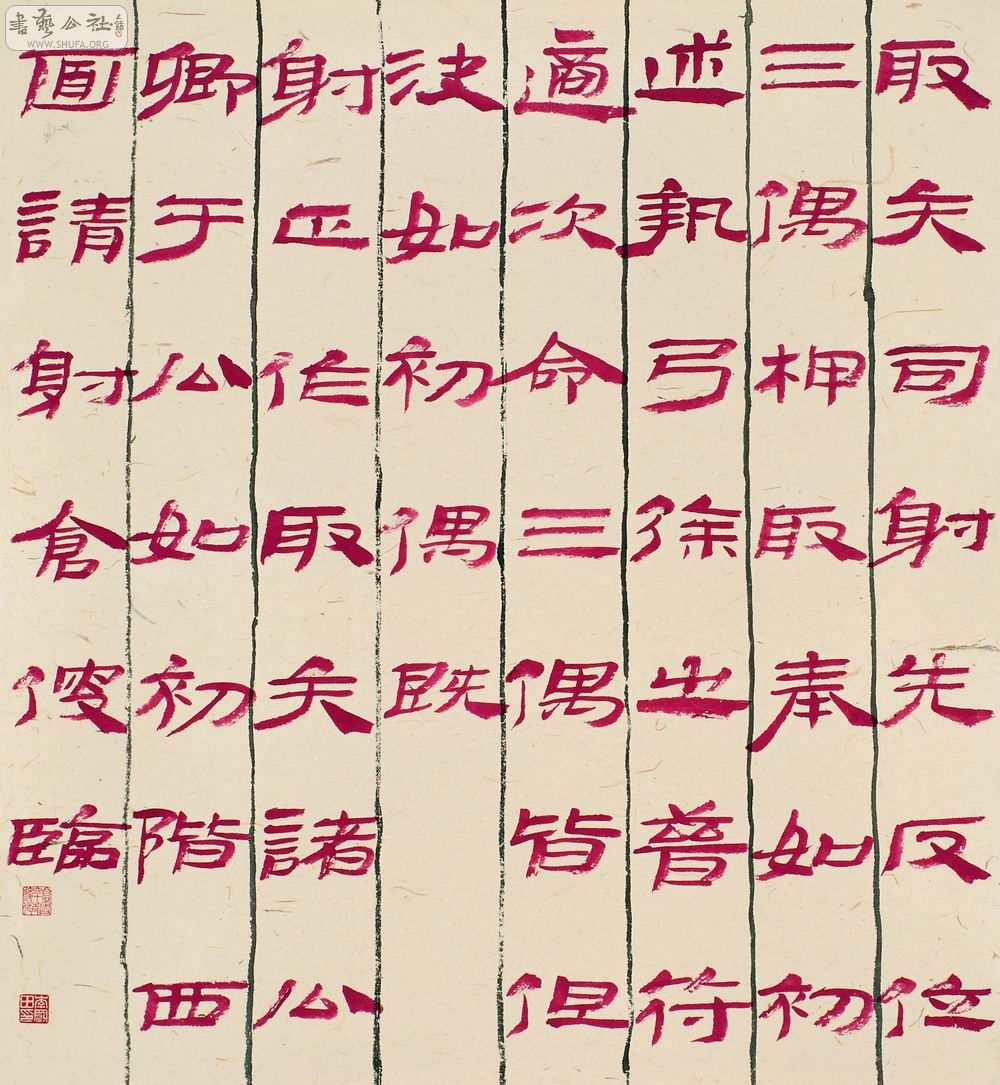 書藝公社
WWW.SHUFA.ORG
取矢司射先反位
三偶柙取奉如初
述執弓徐之普符
適次命三偶皆但
決如初偶既
射正作取矢諸公
卿于公如初階西
面請射倉傁臨